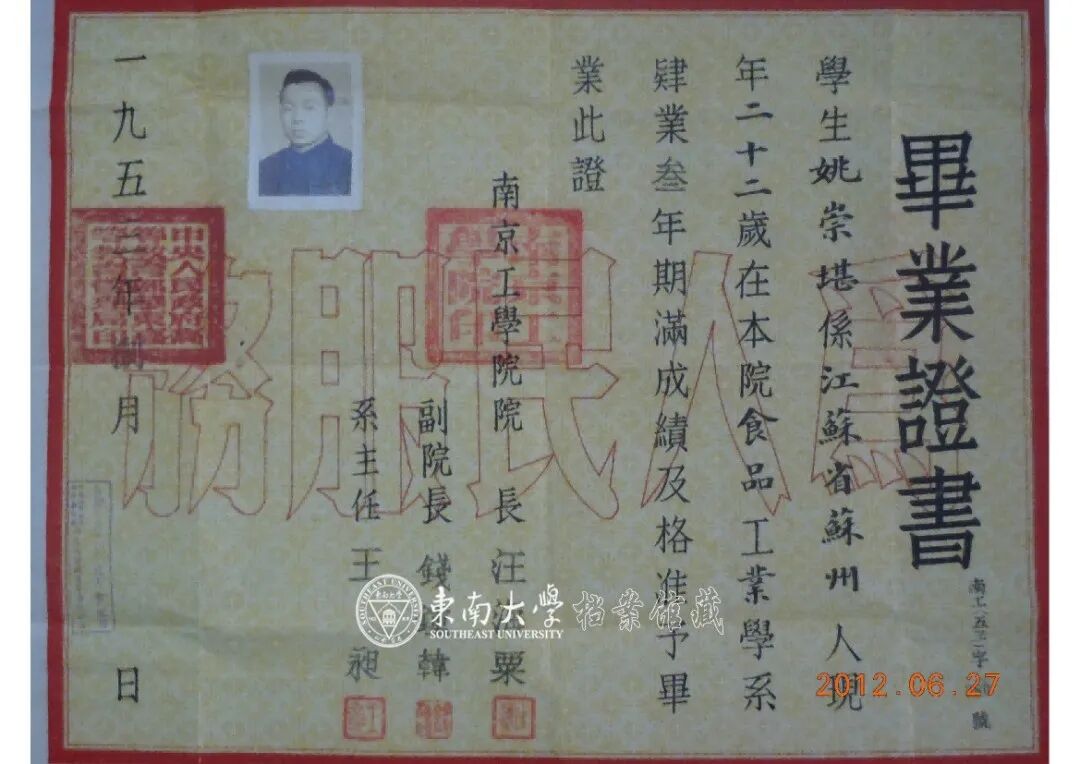 畢業證書
學生姚崇堪係江蘇省蘇州人現
年二十二歲在本院食品工業學系
肄業叁年期滿成績及格准予畢
業此證
南京工學院院長汪海粟
副院長錢鍾韓
系主任王昶
一九五三年捌月 日
為人民服務
中央人民政府
東南大學檔案馆藏
SOUTHEAST UNIVERSITY
2012.06.27